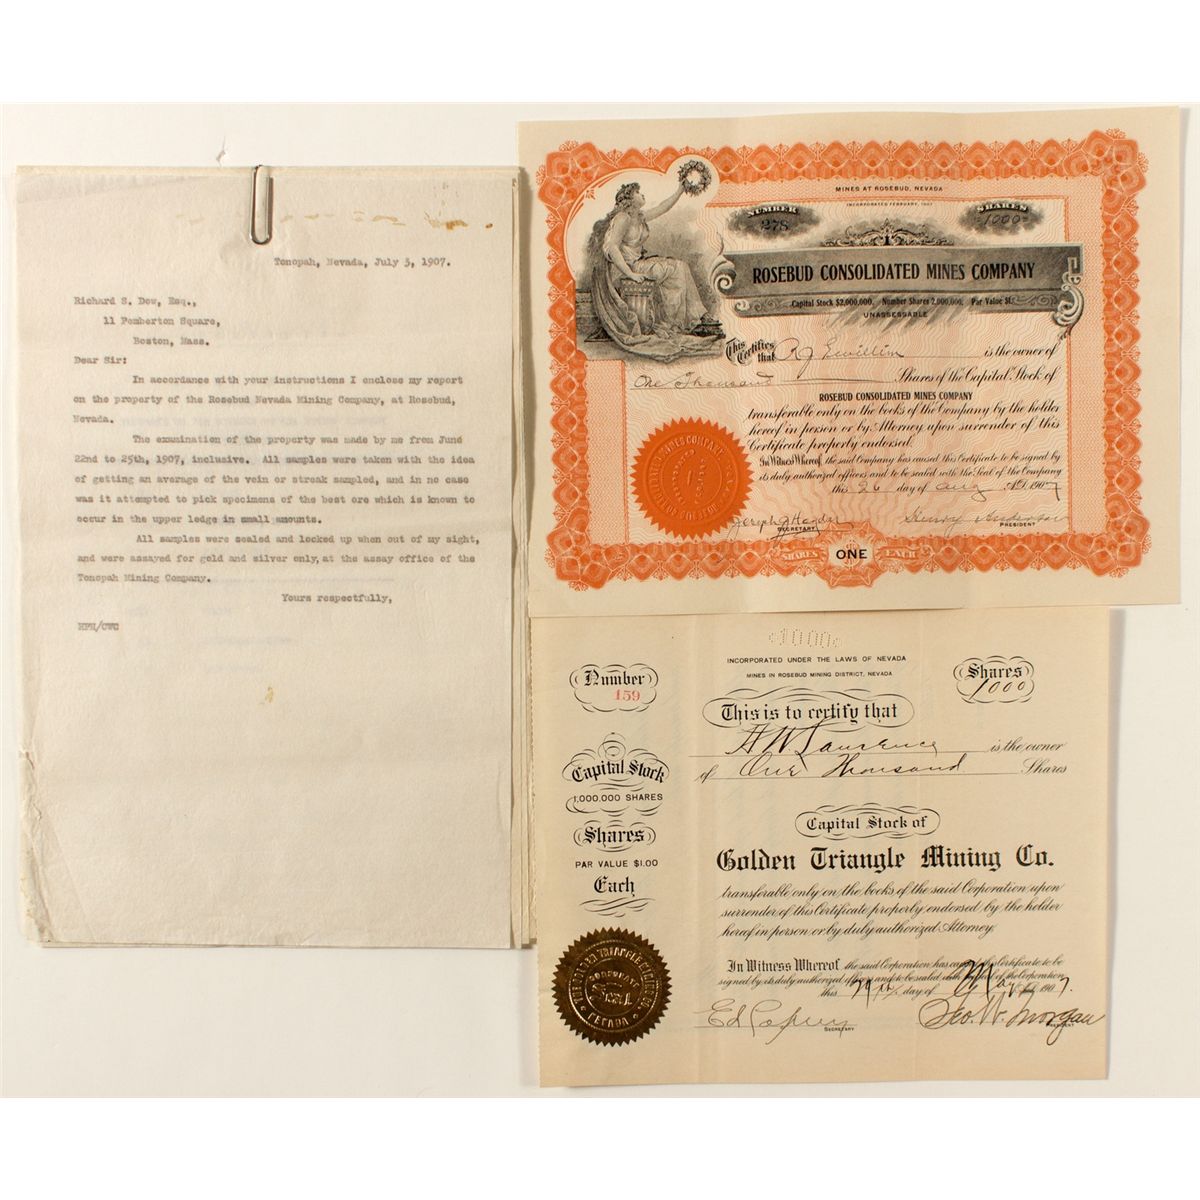 Tonopah, Nevada, July 5, 1907.
Richard S. Dow, Esq.,
11 Pemberton Square,
Boston, Mass.
Dear Sir:
In accordance with your instructions I enclose my report
on the property of the Rosebud Nevada Mining Company, at Rosebud,
Nevada.
The examination of the property was made by me from June
22nd to 25th, 1907, inclusive. All samples were taken with the idea
of getting an average of the vein or streak sampled, and in no case
was it attempted to pick specimens of the best ore which is known to
occur in the upper ledge in small amounts.
All samples were sealed and locked up when out of my sight,
and were assayed for gold and silver only, at the assay office of the
Tonopah Mining Company.
Yours respectfully,
HPH/CWC
MINES AT ROSEBUD, NEVADA
INCORPORATED FEBRUARY, 1907
NUMBER
278
SHARES
1000
ROSEBUD CONSOLIDATED MINES COMPANY
Capital Stock $2,000,000. Number Shares 2,000,000. Par Value $1.
UNASSESSABLE
This Certifies that R J is the owner of
One Thousand Shares of the Capital Stock of
ROSEBUD CONSOLIDATED MINES COMPANY
transferable only on the books of the Company by the holder
hereof in person or by Attorney upon surrender of this
Certificate properly endorsed.
In Witness Whereof, the said Company has caused this Certificate to be signed by
its duly authorized officers and to be sealed with the Seal of the Company
this 26 day of Aug A.D. 1907
Joseph J Henry Anderson
SECRETARY PRESIDENT
SHARES ONE EACH
1000
INCORPORATED UNDER THE LAWS OF NEVADA
MINES IN ROSEBUD MINING DISTRICT, NEVADA
Number
159
Shares
1000
This is to certify that
A W Lawrence is the owner
of One Thousand Shares
Capital Stock
1,000,000 SHARES
Shares
PAR VALUE $1.00
Each
Capital Stock of
Golden Triangle Mining Co.
transferable only on the books of the said Corporation upon
surrender of this Certificate properly endorsed by the holder
hereof in person or by duly authorized Attorney.
In Witness Whereof, the said Corporation has caused this Certificate to be
signed by its duly authorized officers and to be sealed with the Seal of the Corporation
this day of May A.D. 1907.
Ed Geo. W. Morgan
SECRETARY PRESIDENT